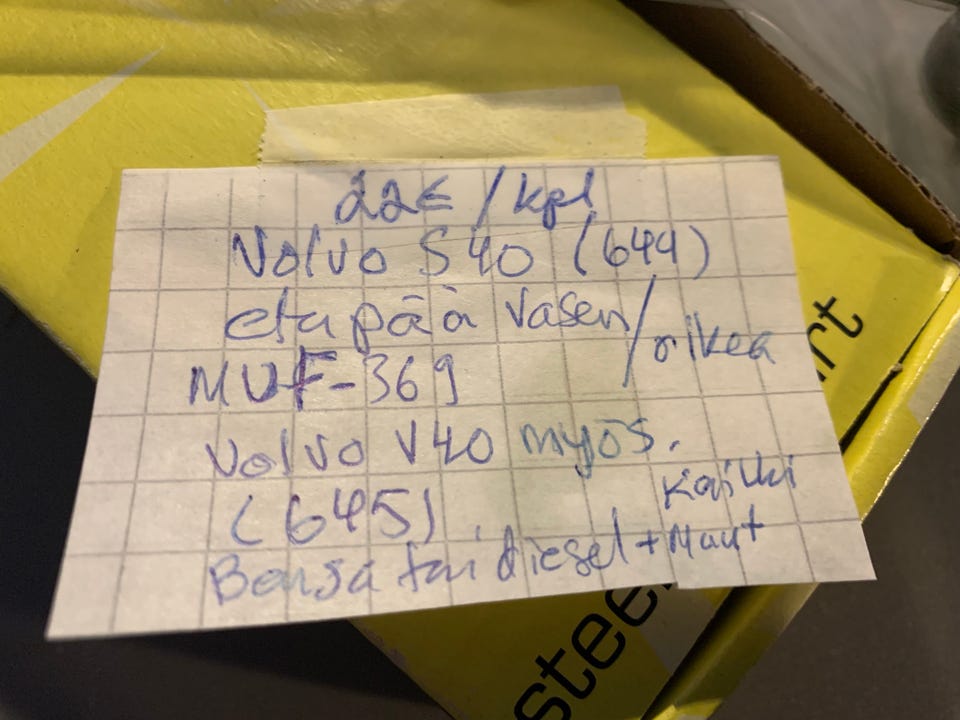 22€ /kpl
Volvo S40 (644)
etu pää Vasen/oikea
MUF-369
Volvo V40 myös.
(645) kaikki
Bensa tai diesel + Muut
steer
rt